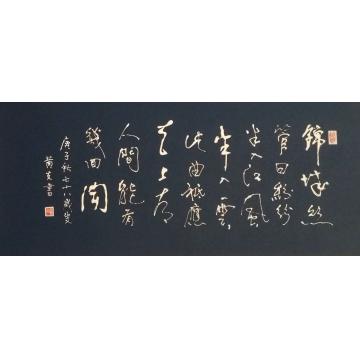 錦城丝
管日紛紛
半入江風
半入雲
此曲祗應
天上有
人間能有
幾回聞
庚子秋七十八歲叟
黄書